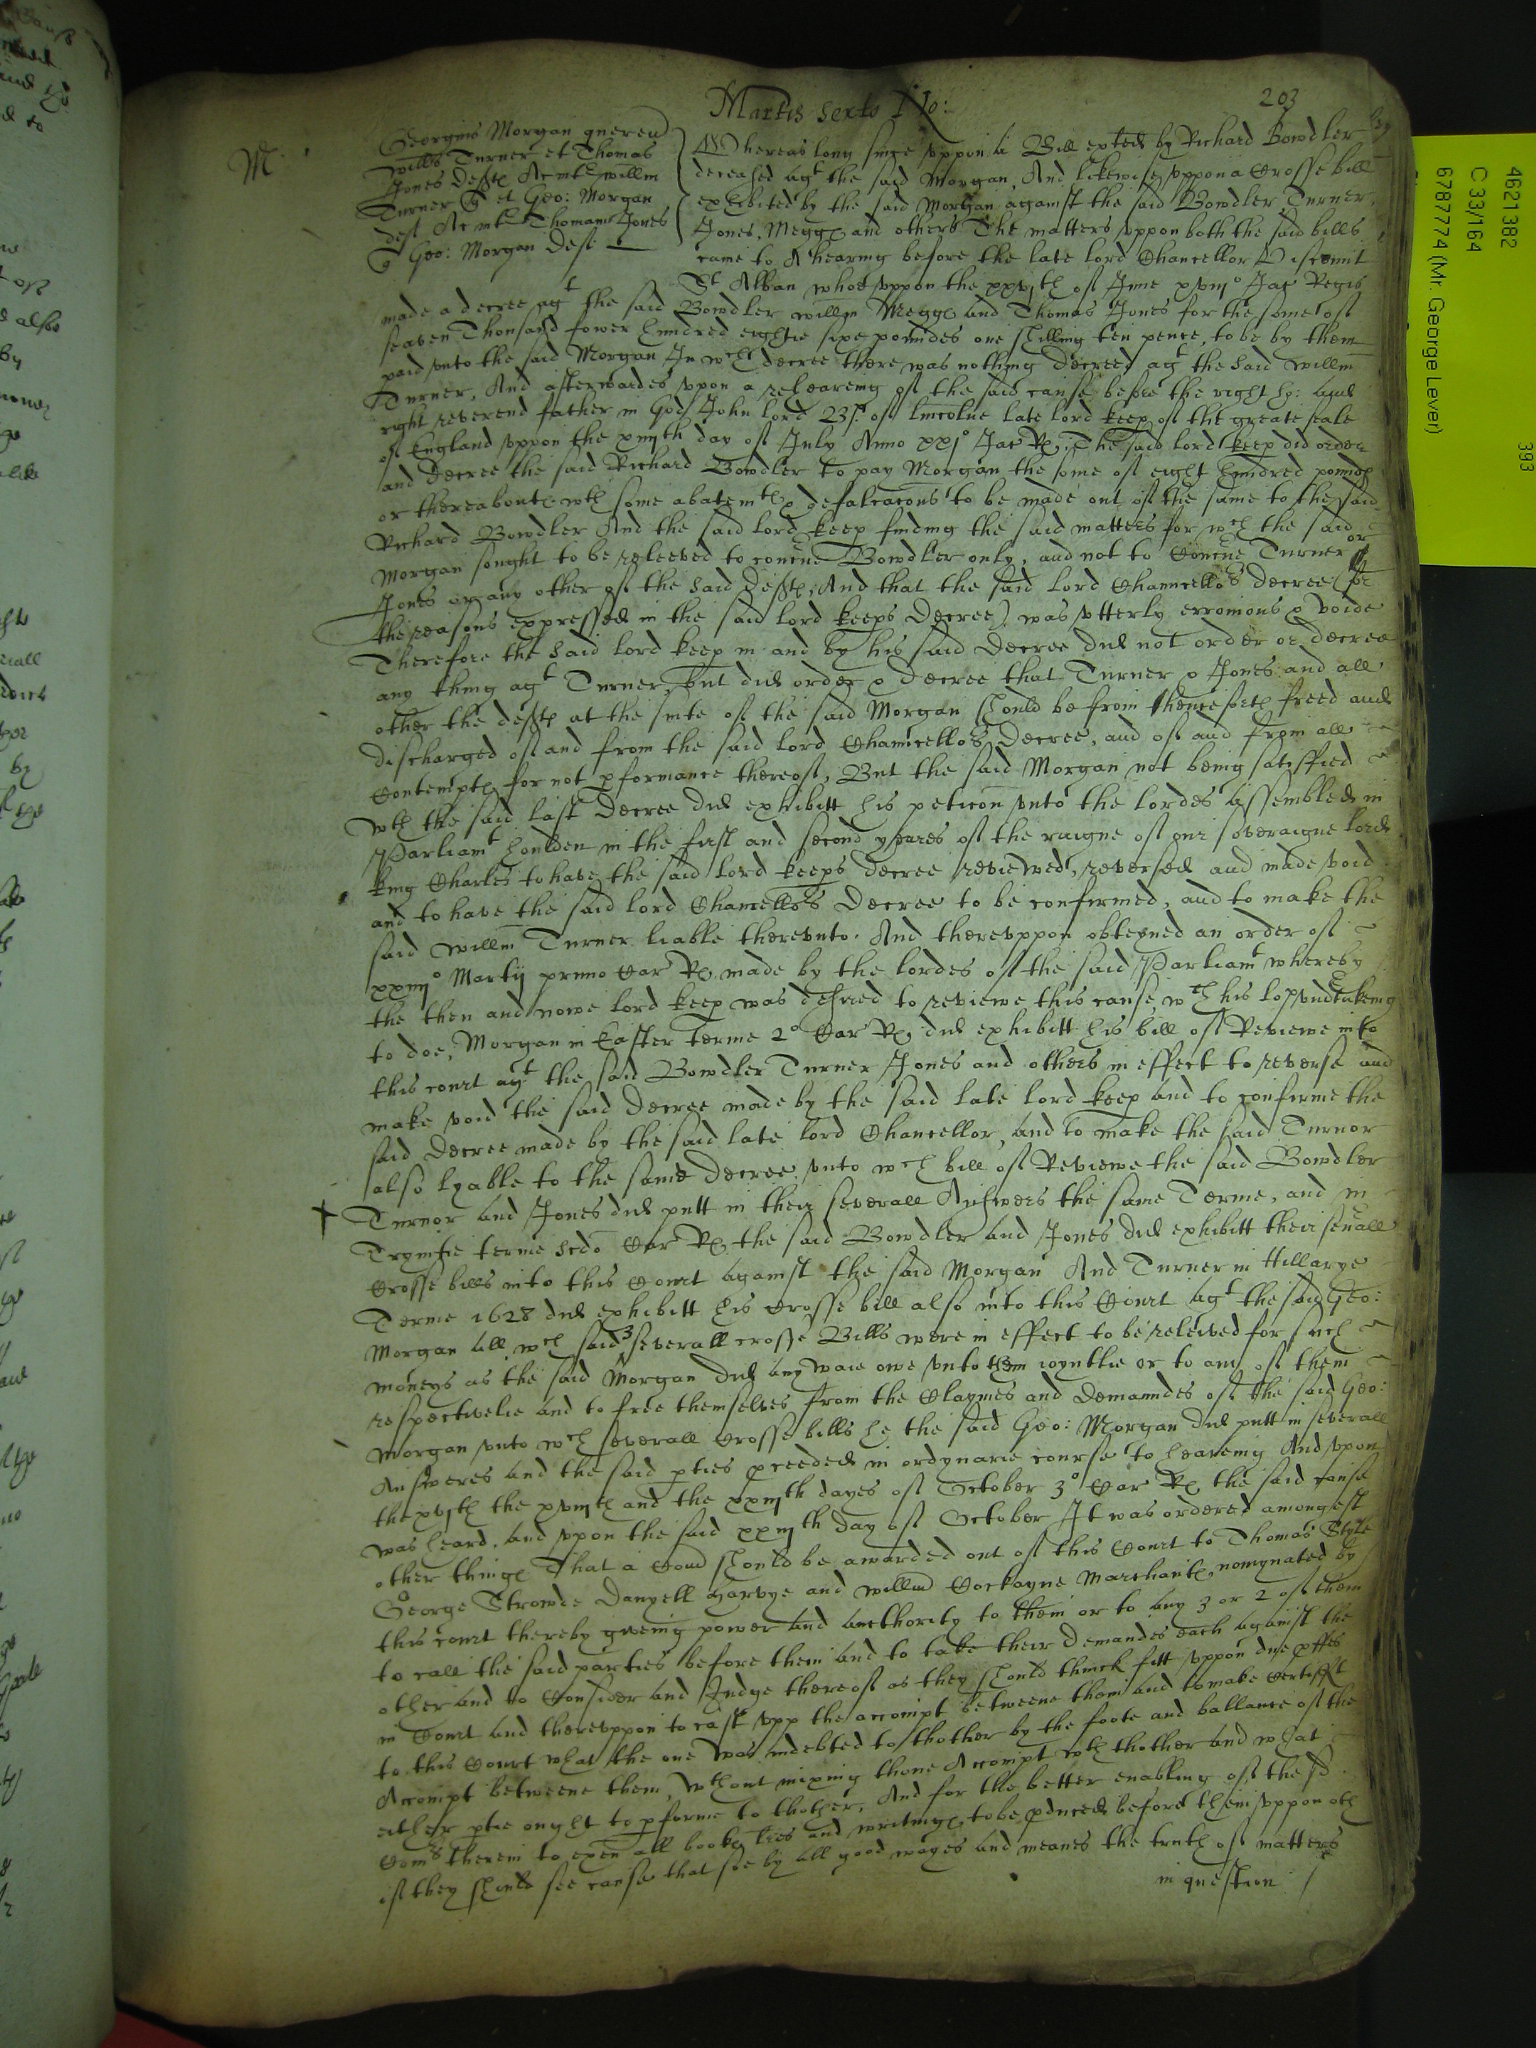 Martis Sexto
203
M
Georgius Morgan quer
Willm Turner et Thomas
Jones Defte Ac int Willm
Turner et Geo: Morgan
deft Ac int Thomam Jones
Geo: Morgan Deft
Whereas long since uppon a Bill exted by Richard Bowdler
deceased agt the said Morgan, And likewise uppon a Crosse bill
exhibited by the said Morgan against the said Bowdler Turner,
Jones, Megge and others The matters uppon both the said bills
came to A hearing before the late lord Chancellor Viscount
St Alban whoe uppon the xxvjth of June xviijo Jac Regis
made a decree agt the said Bowdler willm Megge and Thomas Jones for the some of
seaven Thousand fower hundred eightie sixe poundes one shilling ten pence, to be by them
paid unto the said Morgan In wch decree there was nothing decreed agt the said willm
Turner, And afterwardes upon a rehearing of the said cause before the right ho: and
right reverend father in God John lord Bp: of lincolne late lord keep of the greate seale
of England uppon the day of July Anno xxjo Jac R, The said lord keep did order
and decree the said Richard Bowdler to pay Morgan the some of eight hundred pounds
or thereaboute wth some abatemte & defalcacons to be made out of the same to the said
Richard Bowdler And the said lord keep finding the said matters for wch the said
Morgan sought to be releeved to concerne Bowdler only, and not to Concerne Turner or
Jones or any other of the said Defte, And that the said lord Chauncellors Decree (for
the reasons expressed in the said lord keeps Decree) was utterly erronious & voide
Therefore the said lord keep in and by his said Decree did not order or decree
any thing agt Turner, but did order & decree that Turner & Jones and all
other the defte at the suite of the said Morgan should be from thenceforth freed and
discharged of and from the said lord Chauncellors Decree, and of and from all
Contempte for not pformance thereof, But the said Morgan not being satisffied
wth the said last Decree did exhibitt his peticon unto the lordes Assembled in
Parliamt houlden in the first and second yeares of the raigne of our soveraigne lord
king Charles to have the said lord keeps decree reviewed, reversed and made void
and to have the said lord Chancellors Decree to be confirmed, and to make the
said willm Turner liable thereunto. And thereuppon obteyned an order of
Martij primo Car R, made by the lordes of the said Parliamt whereby
the then and nowe lord keep was desired to reviewe this cause wch his lop undtakeing
to doe, Morgan in Easter terme 2o Car R, did exhibitt his bill of Reviewe into
this court agt the said Bowdler Turner Jones and others in effect to reverse and
make void the said Decree made by the said late lord keep and to confirme the
said Decree made by the said late lord Chancellor, and to make the said Turnor
also lyable to the same Decree unto wch bill of Reviewe the said Bowdler
Turnor and Jones did putt in their severall Answers the same Terme, and in
Trynitie terme scdo Car R, the said Bowdler and Jones did exhibitt their seuall
Crosse bills into this Court against the said Morgan And Turner in Hillarye
Terme 1628 did exhibitt his crosse bill also into this Court agt the said Geo:
Morgan All wch said 3 severall crosse Bills were in effect to be releived for such
moneys as the said Morgan did any waie owe unto them ioyntlie or to any of them
respectivelie and to free themselves from the Claymes and Demaundes of the said Geo:
Morgan unto wch severall Crosse bills he the said Geo: Morgan did putt in severall
Answeres and the said pties pceeded in ordynarie course to heareing And upon
the xvjth the and the dayes of October 3o Car R, the said cause
was heard, and uppon the said day of October It was ordered amongest
other thinge That a Comd should be awarded out of this Court to Thomas Style
George Strowde Danyell Harvye and Willm Cockayne Marchante, nomynated by
this court thereby giveing power and aucthority to them or to any 3 or 2 of them
to call the said parties before them and to take their Demandes each against the
other and to Consider and Judge thereof as they should thinck fitt uppon due pffes
in Court and thereuppon to cast upp the accompt betweene them and to make Certifft
to this Court what the one was indebted to thother by the foote and ballance of the
Accompt betweene them, wthout mixing thone Accompt wth thother and what
either ptie ought to pforme to thother, And for the better enabling of the sd
Comrs therein to exen all booke lres and writinge to be pduced before them uppon oth
if they should see cause that soe by all good wayes and meanes the truth of matters
in question
4621382
C 33/164
6787774 (Mr. George Lever)
393